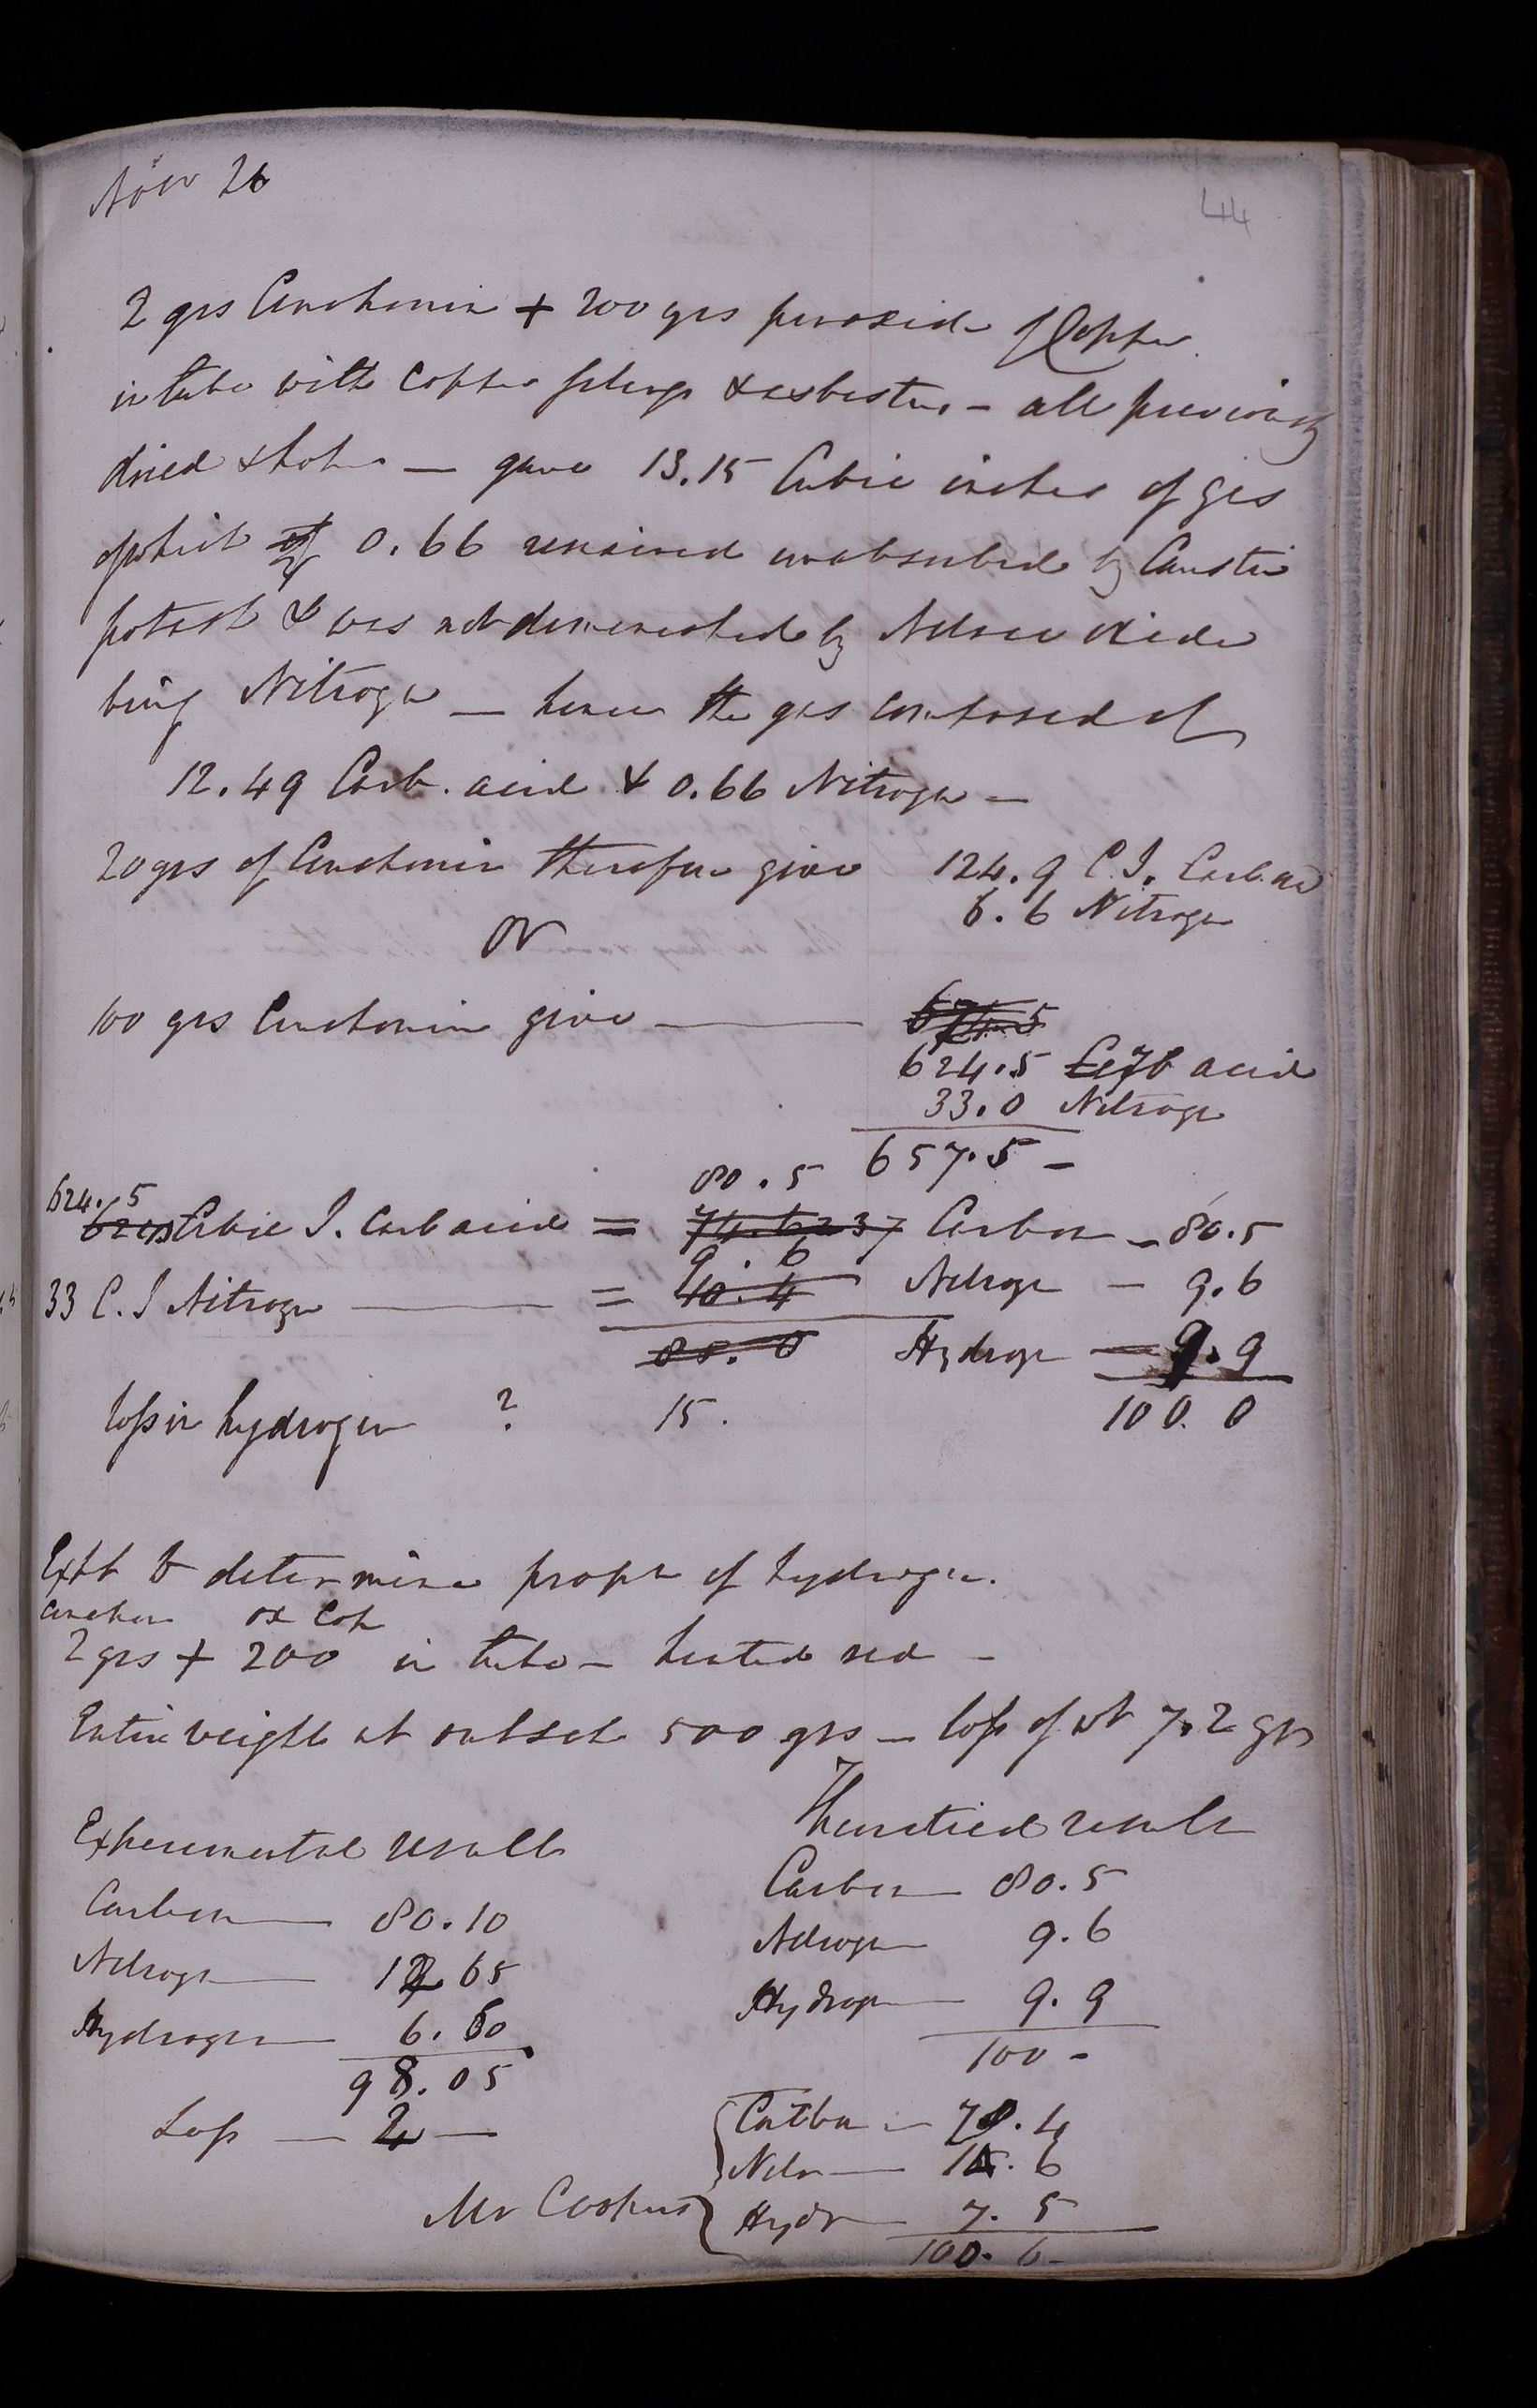 Novr 26
44
2 grs Cinchonin + 200 grs peroxide of Copper
in tube with copper filings & asbestus - all previously
dried & hot — gave 13.15 Cubic inches of gas
of which of 0.66 remained unabsorbed by Caustic
potash & was not diminished by Nitrous Oxide
being Nitrogen — hence the gas composed of
12.49 Carb. acid & 0.66 Nitrogen —
20 grs of Cinchonin therefore give 124.9 C.I. Carb. acid
6.6 Nitrogen
or
100 grs Cinchonin give —
624.5 Carb acid
33.0 Nitrogen
657.5 -
624.5 80.5
Cubic I. Carb acid = 74.6237 Carbon - 80.5
9.6
33 C.I Nitrogen — = 10.4 Nitrogen - 9.6
85.0 Hydrogen — 9.9
loss in hydrogen ? 15. 100.0
Expt to determine propn of hydrogen.
Cinchon ox Cop
2 grs + 200 in tube - heated red -
Entire weight at outset 500 grs - loss of wt 7.2 grs
Experimental result
Carbon — 80.10
Nitrogen — 65
Hydrogen — 6.60
98.05
Loss — 2 —
Theoretical result
Carbon — 80.5
Nitrogen — 9.6
Hydrogen — 9.9
100 -
Carbon — 78.4
Nitr — 14.6
Mr Coopers Hydr — 7.5
100.6-